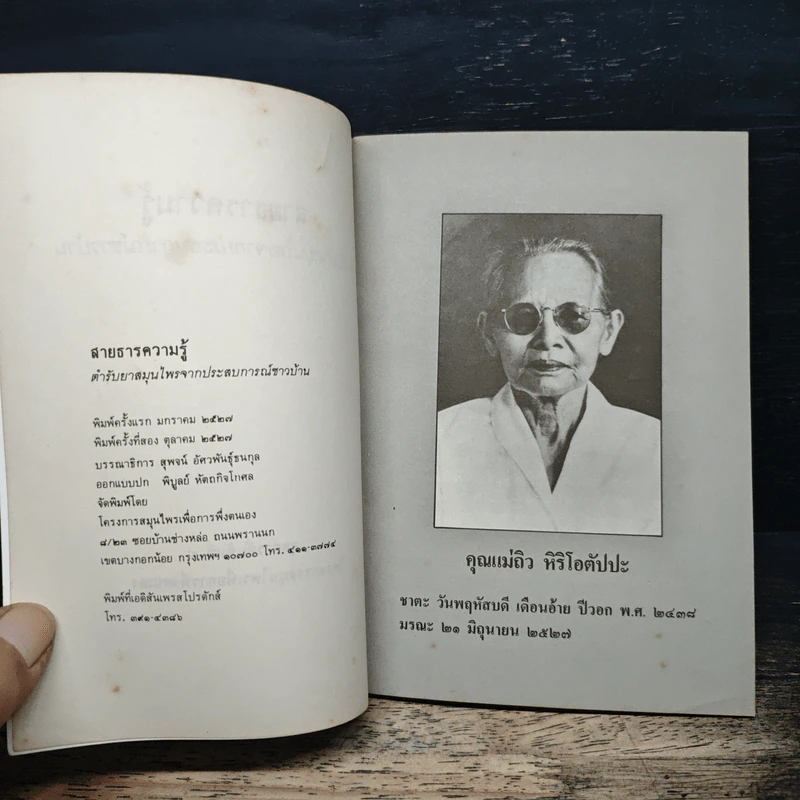 สายธารความรู้
ตำรับยาสมุนไพรจากประสบการณ์ชาวบ้าน
พิมพ์ครั้งแรก มกราคม ๒๕๒๗
พิมพ์ครั้งที่สอง ตุลาคม ๒๕๒๗
บรรณาธิการ สุพจน์ อัศวพันธุ์ธนกุล
ออกแบบปก พิบูลย์ หัตถกิจโกศล
จัดพิมพ์โดย
โครงการสมุนไพรเพื่อการพึ่งตนเอง
๘/๒๓ ซอยบ้านช่างหล่อ ถนนพรานนก
เขตบางกอกน้อย กรุงเทพฯ ๑๐๗๐๐ โทร. ๔๑๑-๓๗๗๔
พิมพ์ที่เอดิสันเพรสโปรดักส์
โทร. ๓๙๑-๔๓๘๖
คุณแม่ถิว หิริโอตัปปะ
ชาตะ วันพฤหัสบดี เดือนอ้าย ปีวอก พ.ศ. ๒๔๓๘
มรณะ ๒๑ มิถุนายน ๒๕๒๗